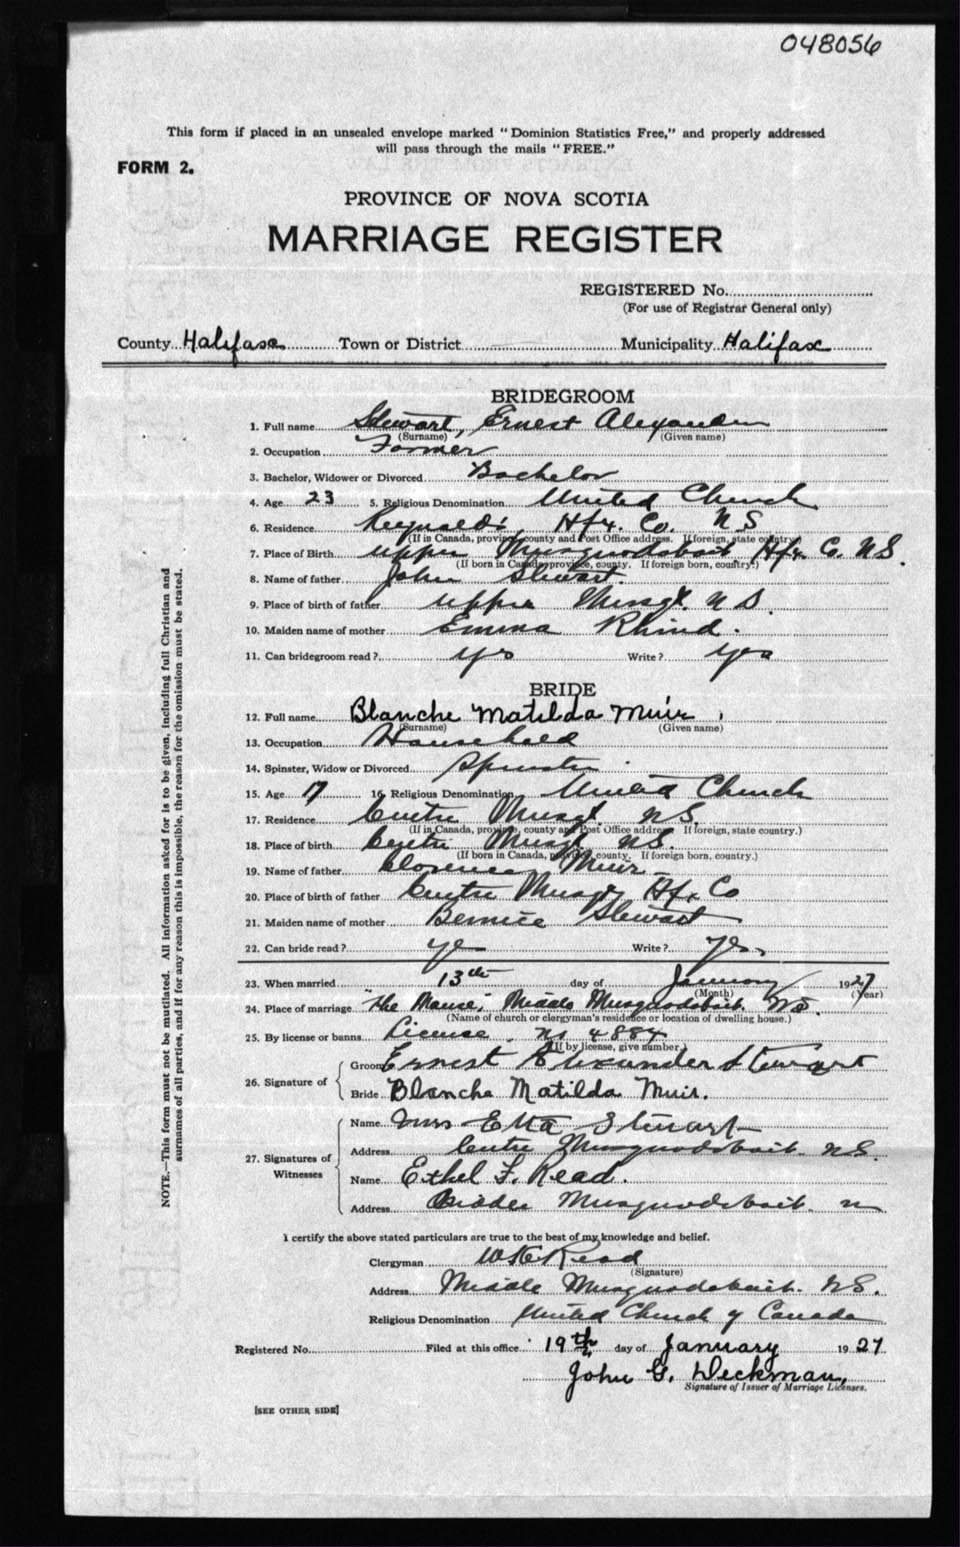 048056
This form if placed in an unsealed envelope marked "Dominion Statistics Free," and properly addressed
will pass through the mails "FREE."
FORM 2.
PROVINCE OF NOVA SCOTIA
MARRIAGE REGISTER
REGISTERED No.
(For use of Registrar General only)
County Halifax Town or District Municipality Halifax
BRIDEGROOM
1. Full name Stewart, Ernest Alexander
(Surname) (Given name)
2. Occupation Farmer
3. Bachelor, Widower or Divorced Bachelor
4. Age 23 5. Religious Denomination United Church
6. Residence Hfx. Co. N S
(If in Canada, province, county and Post Office address. If foreign, state country.)
7. Place of Birth Upper Musquodoboit Hfx. Co. N.S.
(If born in Canada, province, county. If foreign born, country.)
8. Name of father John Stewart
9. Place of birth of father Upper Musqt. N S.
10. Maiden name of mother Emma Rhind.
11. Can bridegroom read? yes Write? yes
BRIDE
12. Full name Blanche Matilda Muir,
(Surname) (Given name)
13. Occupation Household
14. Spinster, Widow or Divorced Spinster
15. Age 17 16. Religious Denomination United Church
17. Residence Centre Musqt. N.S.
(If in Canada, province, county and Post Office address If foreign, state country.)
18. Place of birth Centre Musqt N.S.
(If born in Canada, province, county. If foreign born, country.)
19. Name of father Clarence Muir
20. Place of birth of father Centre Musqt Hfx Co
21. Maiden name of mother Bernice Stewart
22. Can bride read? yes Write? Yes,
23. When married 13th day of January 1927
(Month) (Year)
24. Place of marriage "The Manse," Middle Musquodoboit. N.S.
(Name of church or clergyman's residence or location of dwelling house.)
25. By license or banns License. No 4884
(If by license, give number)
26. Signature of Groom Ernest Alexander Stewart
Bride Blanche Matilda Muir.
27. Signatures of Witnesses
Name Miss Etta Stewart
Address Centre Musquodoboit. N.S.
Name Ethel F. Read.
Address Middle Musquodoboit.
NOTE.—This form must not be mutilated. All information asked for is to be given, including full Christian and
surnames of all parties, and if for any reason this is impossible, the reason for the omission must be stated.
I certify the above stated particulars are true to the best of my knowledge and belief.
Clergyman Read
(Signature)
Address Middle Musquodoboit. N.S.
Religious Denomination United Church of Canada
Registered No. Filed at this office 19th day of January 1927
John G. Deckman,
Signature of Issuer of Marriage Licenses.
[SEE OTHER SIDE]